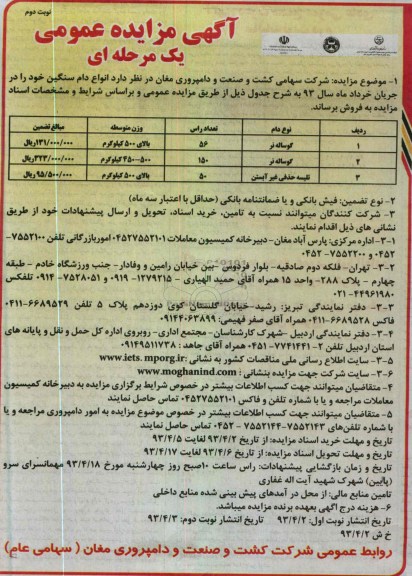 نوبت دوم
آگهی مزایده عمومی
یک مرحله ای
۱- موضوع مزایده: شرکت سهامی کشت و صنعت و دامپروری مغان در نظر دارد انواع دام سنگین خود را در
جریان خرداد ماه سال ۹۳ به شرح جدول ذیل از طریق مزایده عمومی و براساس شرایط و مشخصات اسناد
مزایده به فروش برساند.
ردیف نوع دام تعداد راس وزن متوسطه مبالغ تضمین
۱ گوساله نر ۵۶ بالای ۵۰۰ کیلوگرم ۱۳۱/۰۰۰/۰۰۰ریال
۲ گوساله نر ۱۵۰ ۴۵۰-۵۰۰ کیلوگرم ۳۲۳/۰۰۰/۰۰۰ریال
۳ تلیسه حذفی غیر آبستن ۵۰ بالای ۵۰۰ کیلوگرم ۹۵/۵۰۰/۰۰۰ریال
۲- نوع تضمین: فیش بانکی و یا ضمانتنامه بانکی (حداقل با اعتبار سه ماه)
۳- شرکت کنندگان میتوانند نسبت به تامین، خرید اسناد، تحویل و ارسال پیشنهادات خود از طریق
نشانی های ذیل اقدام نمایند.
۳-۱- اداره مرکزی: پارس آباد مغان- دبیرخانه کمیسیون معاملات ۰۴۵۲۷۵۵۲۱۰۱ اموربازرگانی تلفن ۷۵۵۲۱۰۰-
۰۴۵۲ و ۷۵۵۲۲۰۰-۰۴۵۲
۳-۲- تهران- فلکه دوم صادقیه- بلوار فردوس -بین خیابان رامین و وفادار- جنب ورزشگاه خادم - طبقه
چهارم - پلاک ۲۸۸- واحد ۱۵ همراه آقای حمید الهیاری - ۱۲۷۹۲۱۵-۰۹۱۹ و ۷۵۲۸۰۵۱-۰۹۱۴ تلفکس
۴۴۹۶۱۹۸۰-۰۲۱
۳-۳- دفتر نمایندگی تبریز: رشید- خیابان گلستان کوی دوازدهم پلاک ۵ تلفن ۶۶۸۹۵۲۹-۰۴۱۱
فاکس ۶۶۸۹۵۲۸-۰۴۱۱ همراه آقای صفر فهیمی: ۰۹۱۴۴۰۶۳۸۹۹
۳-۴- دفتر نمایندگی اردبیل -شهرک کارشناسان- مجتمع اداری- روبروی اداره کل حمل و نقل و پایانه های
استان اردبیل تلفن ۲-۷۷۴۱۴۴۱-۰۴۵۱ همراه آقای جاهد: ۰۹۱۴۹۵۱۱۷۳۸
۳-۵- سایت اطلاع رسانی ملی مناقصات کشور به نشانی: www.iets.mporg.ir
۳-۶- سایت شرکت جهت مزایده بنشانی: www.moghanind.com
۴- متقاضیان میتوانند جهت کسب اطلاعات بیشتر در خصوص شرایط برگزاری مزایده به دبیرخانه کمیسیون
معاملات مراجعه و یا با شماره تلفن و فاکس ۰۴۵۲۷۵۵۲۱۰۱ تماس حاصل نمایند
۵- متقاضیان میتوانند جهت کسب اطلاعات بیشتر در خصوص موضوع مزایده به امور دامپروری مراجعه و یا
با شماره تلفن‌های ۷۵۵۲۱۴۳-۷۵۵۲۱۴۴ - ۰۴۵۲ تماس حاصل نمایند
تاریخ و مهلت خرید اسناد مزایده: از تاریخ ۹۳/۴/۲ لغایت ۹۳/۴/۵
تاریخ و مهلت تحویل اسناد مزایده: از تاریخ ۹۳/۴/۶ لغایت ۹۳/۴/۱۷
تاریخ و زمان بازگشایی پیشنهادات: راس ساعت ۱۰صبح روز چهارشنبه مورخ ۹۳/۴/۱۸ مهمانسرای سرو
(پایین) شهرک شهید آیت اله غفاری
تامین منابع مالی: از محل در آمدهای پیش بینی شده منابع داخلی
۶- هزینه درج آگهی بعهده برنده مزایده میباشد.
تاریخ انتشار نوبت اول: ۹۳/۴/۲ تاریخ انتشار نوبت دوم: ۹۳/۴/۳
خ ش ۹۳/۴/۲
روابط عمومی شرکت کشت و صنعت و دامپروری مغان ( سهامی عام)